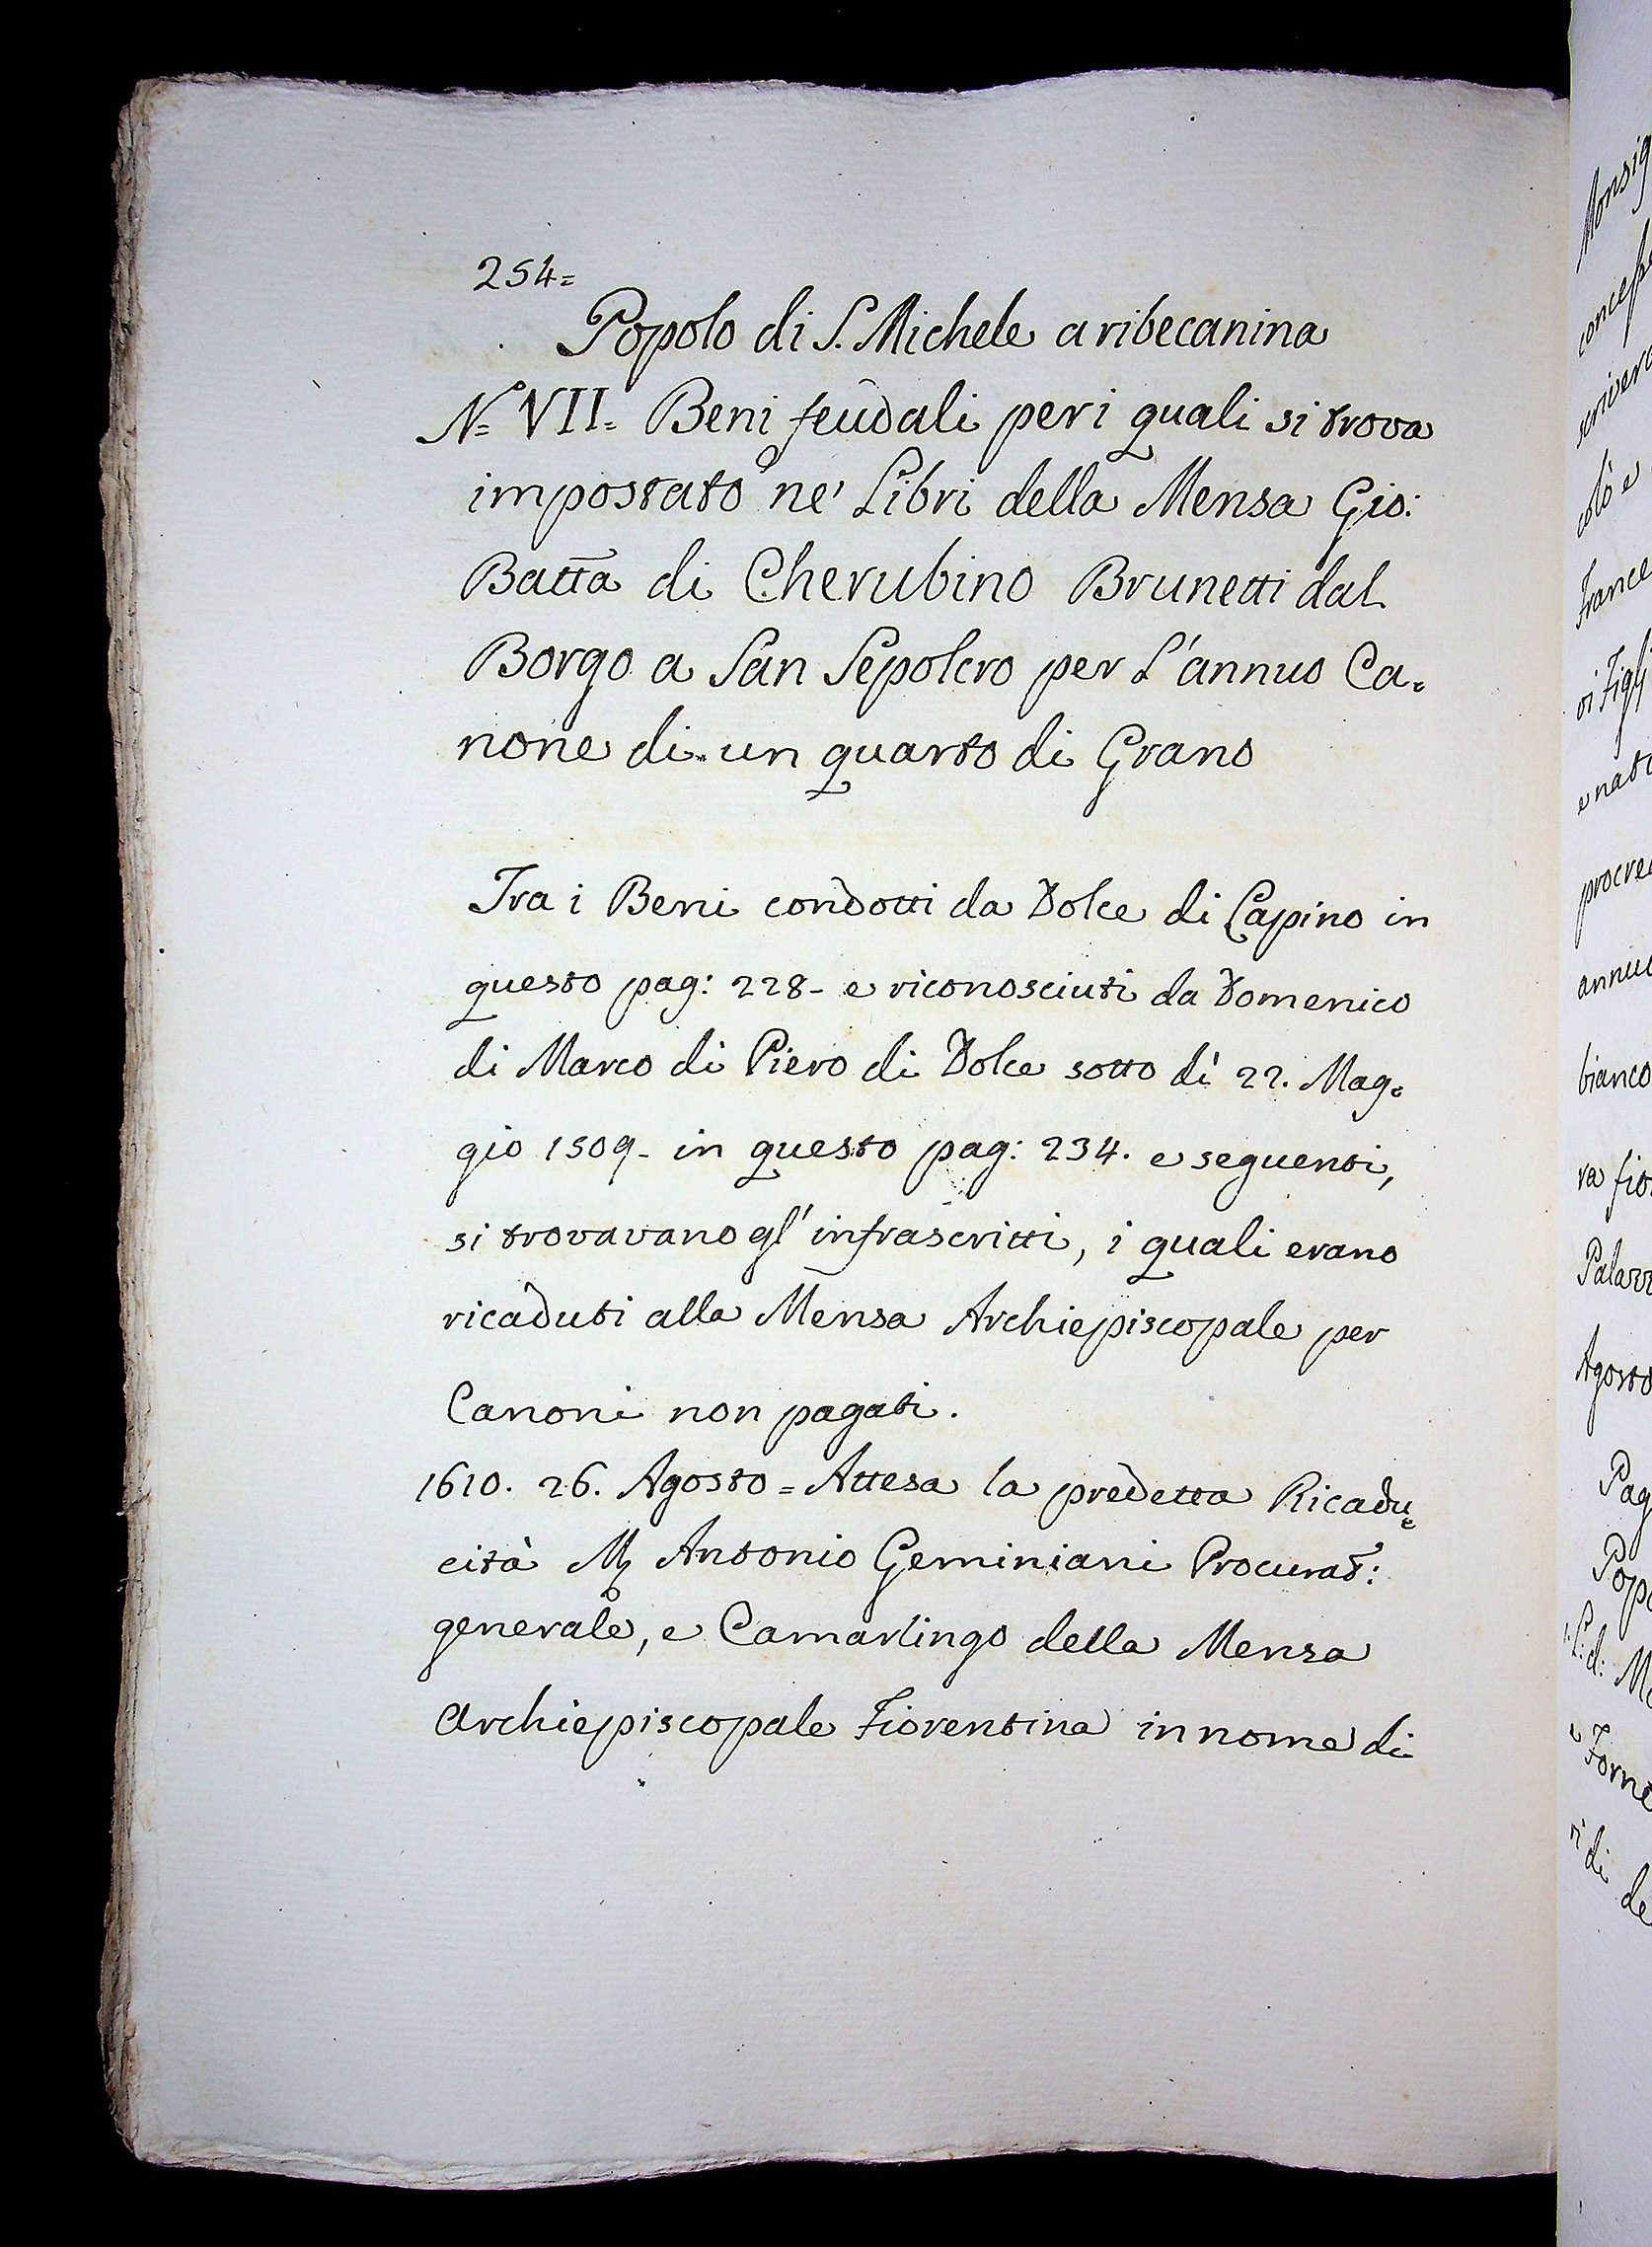 254=
Popolo di S. Michele a ribecanina
N.° VII= Beni feudali per i quali si trova
impostato ne' Libri della Mensa Gio:
Batta di Cherubino Brunetti dal
Borgo a San Sepolcro per L'annuo Ca=
none di un quarto di Grano
Tra i Beni condotti da Dolce di Capino in
questo pag: 228- e riconosciuti da Domenico
di Marco di Piero di Dolce sotto dì 22. Mag=
gio 1509- in questo pag: 234. e seguenti,
si trovavano gl' infrascritti, i quali erano
ricaduti alla Mensa Archiepiscopale per
Canoni non pagati.
1610. 26. Agosto = Attesa la predetta Ricadu=
cità Antonio Geminiani Procurat:
generale, e Camarlingo della Mensa
Archiepiscopale Fiorentina in nome di
Monsig
concesse
colò e
France
oi Figli
e nato
procre
annuo
bianco
va fio
Agosto
Pag
Popo
e Forne
di de